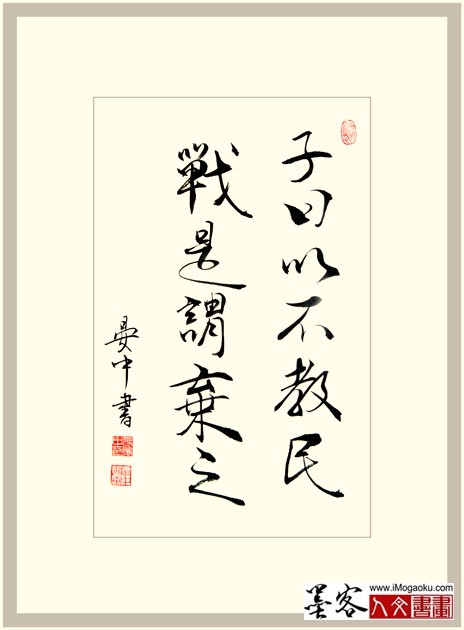 子曰以不教民
戰是謂棄之
晏中書
www.iMogaoku.com
墨客
人文書畫